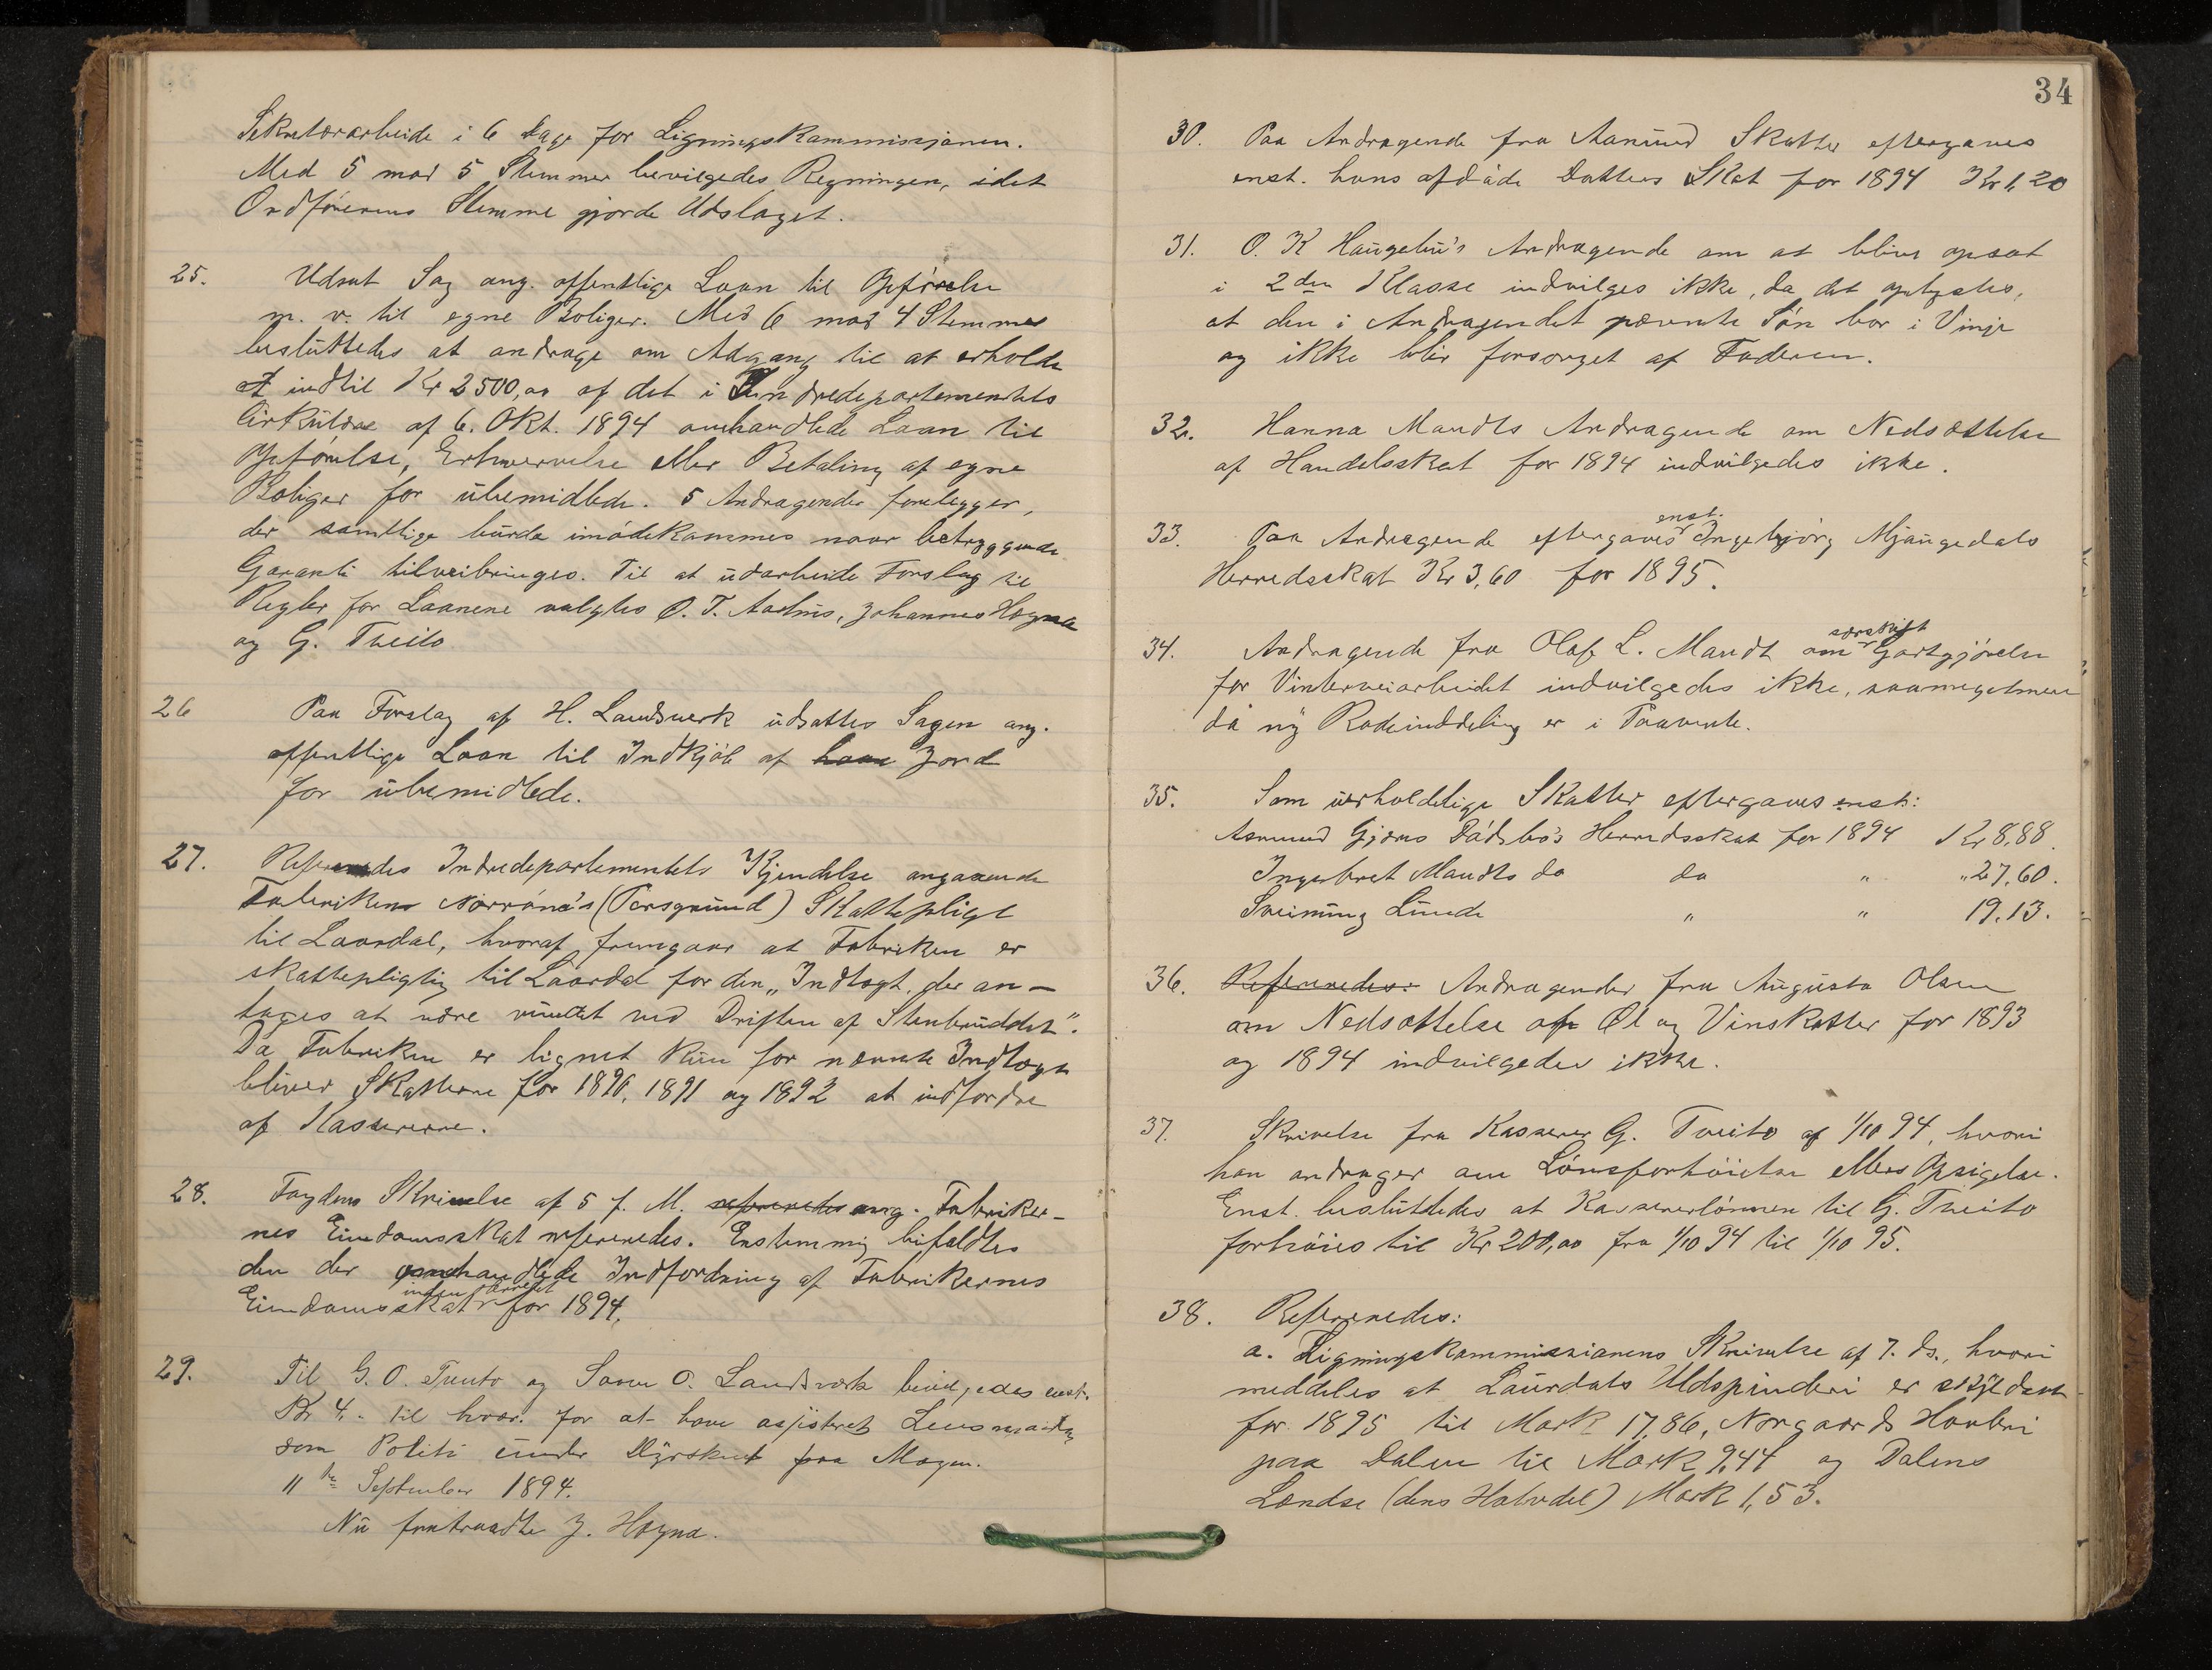 Sekretærarbeide i 6 Dage for Ligningskommissjonen.
Med 5 mod 5 Stemmer bevilgedes Regningen, idet
Ordførerens Stemme gjorde Udslaget.
25. Udsat Sag ang. offentlige Laan til Opførelse
m. v. til egne Boliger. Med 6 mod 4 Stemmer
besluttedes at andrage om Adgang til at erholde
indtil Kr 2500,00 af det i Indredepartementets
Cirkulære af 6. Okt. 1894 omhandlede Laan til
Opførelse, Erhvervelse eller Betaling af egne
Boliger for ubemidlede. 5 Andragender forelegger,
der samtlige burde imødekommes naar betryggende
Garanti tilveibringes. Til at udarbeide Forslag til
Regler for Laanene valgtes O. T. Aarhus, Johannes Høgna
og G. Tveito
26 Paa Forslag af H. Landsverk udsattes Sagen ang.
offentlige Laan til Indkjøb af Jord
for ubemidlede.
27. Refereredes Indredepartementets Kjendelse angaaende
Fabriken Norrøna's (Porsgrund) Skattepligt
til Laardal, hvoraf fremgaar at Fabriken er
skattepligtig til Laardal for den „Indtægt, der an-
tages at være vundet ved Driften af Stenbruddet".
Da Fabriken er lignet kun for nævnte Indtægt
bliver Skatterne for 1890, 1891 og 1892 at indfordre
af Kassererne.
28. Fogdens Skrivelse af 5 f. M. refereredes ang. Fabriker-
nes Eiendomsskat refereredes. Enstemmig bifaldtes
den der omhandlede Indfordring af Fabrikernes
Eiendomsskat inden Herredet for 1894.
29. Til G. O. Tveito og Sveen O. Landsverk bevilgedes enst.
Kr 4,- til hver for at have assisteret Lensmanden
som Politi under Dyrskuet paa Mogen.
11te September 1894.
Nu fratraadte J. Høgna.
34
30. Paa Andragende fra Aanund Skatter eftergaves
enst. hans afdøde Datters Skat for 1894 Kr 1,20
31. O. K Haugelui's Andragende om at blive opsat
i 2den Klasse indvilges ikke, da det oplystes,
at den i Andragendet nævnte Søn bor i Vinje
og ikke blir forsørget af Faderen.
32. Hanna Mandts Andragende om Nedsættelse
af Handelsskat for 1894 indvilgedes ikke.
33. Paa Andragende eftergaves enst. Ingebjørg Mjaugedals
Herredsskat Kr 3,60 for 1895.
34. Andragende fra Olaf L. Mandt om særskilt Godtgjørelse
for Vinterveiarbeidet indvilgedes ikke, saameget mere
da ny Rodeinddeling er i Paavente.
35. Som uerholdelige Skatter eftergaves enst:
Asmund Gjøens Dådsbo's Herredsskat for 1894 Kr 8,88.
Ingebret Mandts do do " " 27,60.
Sveinung Lunde " " 19,13.
36. Refereredes: Andragender fra Augusta Olsen
om Nedsættelse af Øl og Vinskatter for 1893
og 1894 indvilgedes ikke.
37. Skrivelse fra Kasserer G. Tveito af 1/10 94, hvori
han andrager om Lønsforhøielse ellers Opsigelse.
Enst. besluttedes at Kassererlønnen til G. Tveito
forhøies til Kr 200,00 fra 1/10 94 til 1/10 95.
38. Refereredes:
a. Ligningskommissionens Skrivelse af 7. ds., hvori
meddeles at Laurdals Uldspinderi er skyldsat
for 1895 til Mark 17,86, Norgaards Hovberi
paa Dalen til Mark 9,44 og Dalens
Lændse (dens Halvdel) Mark 1,53.